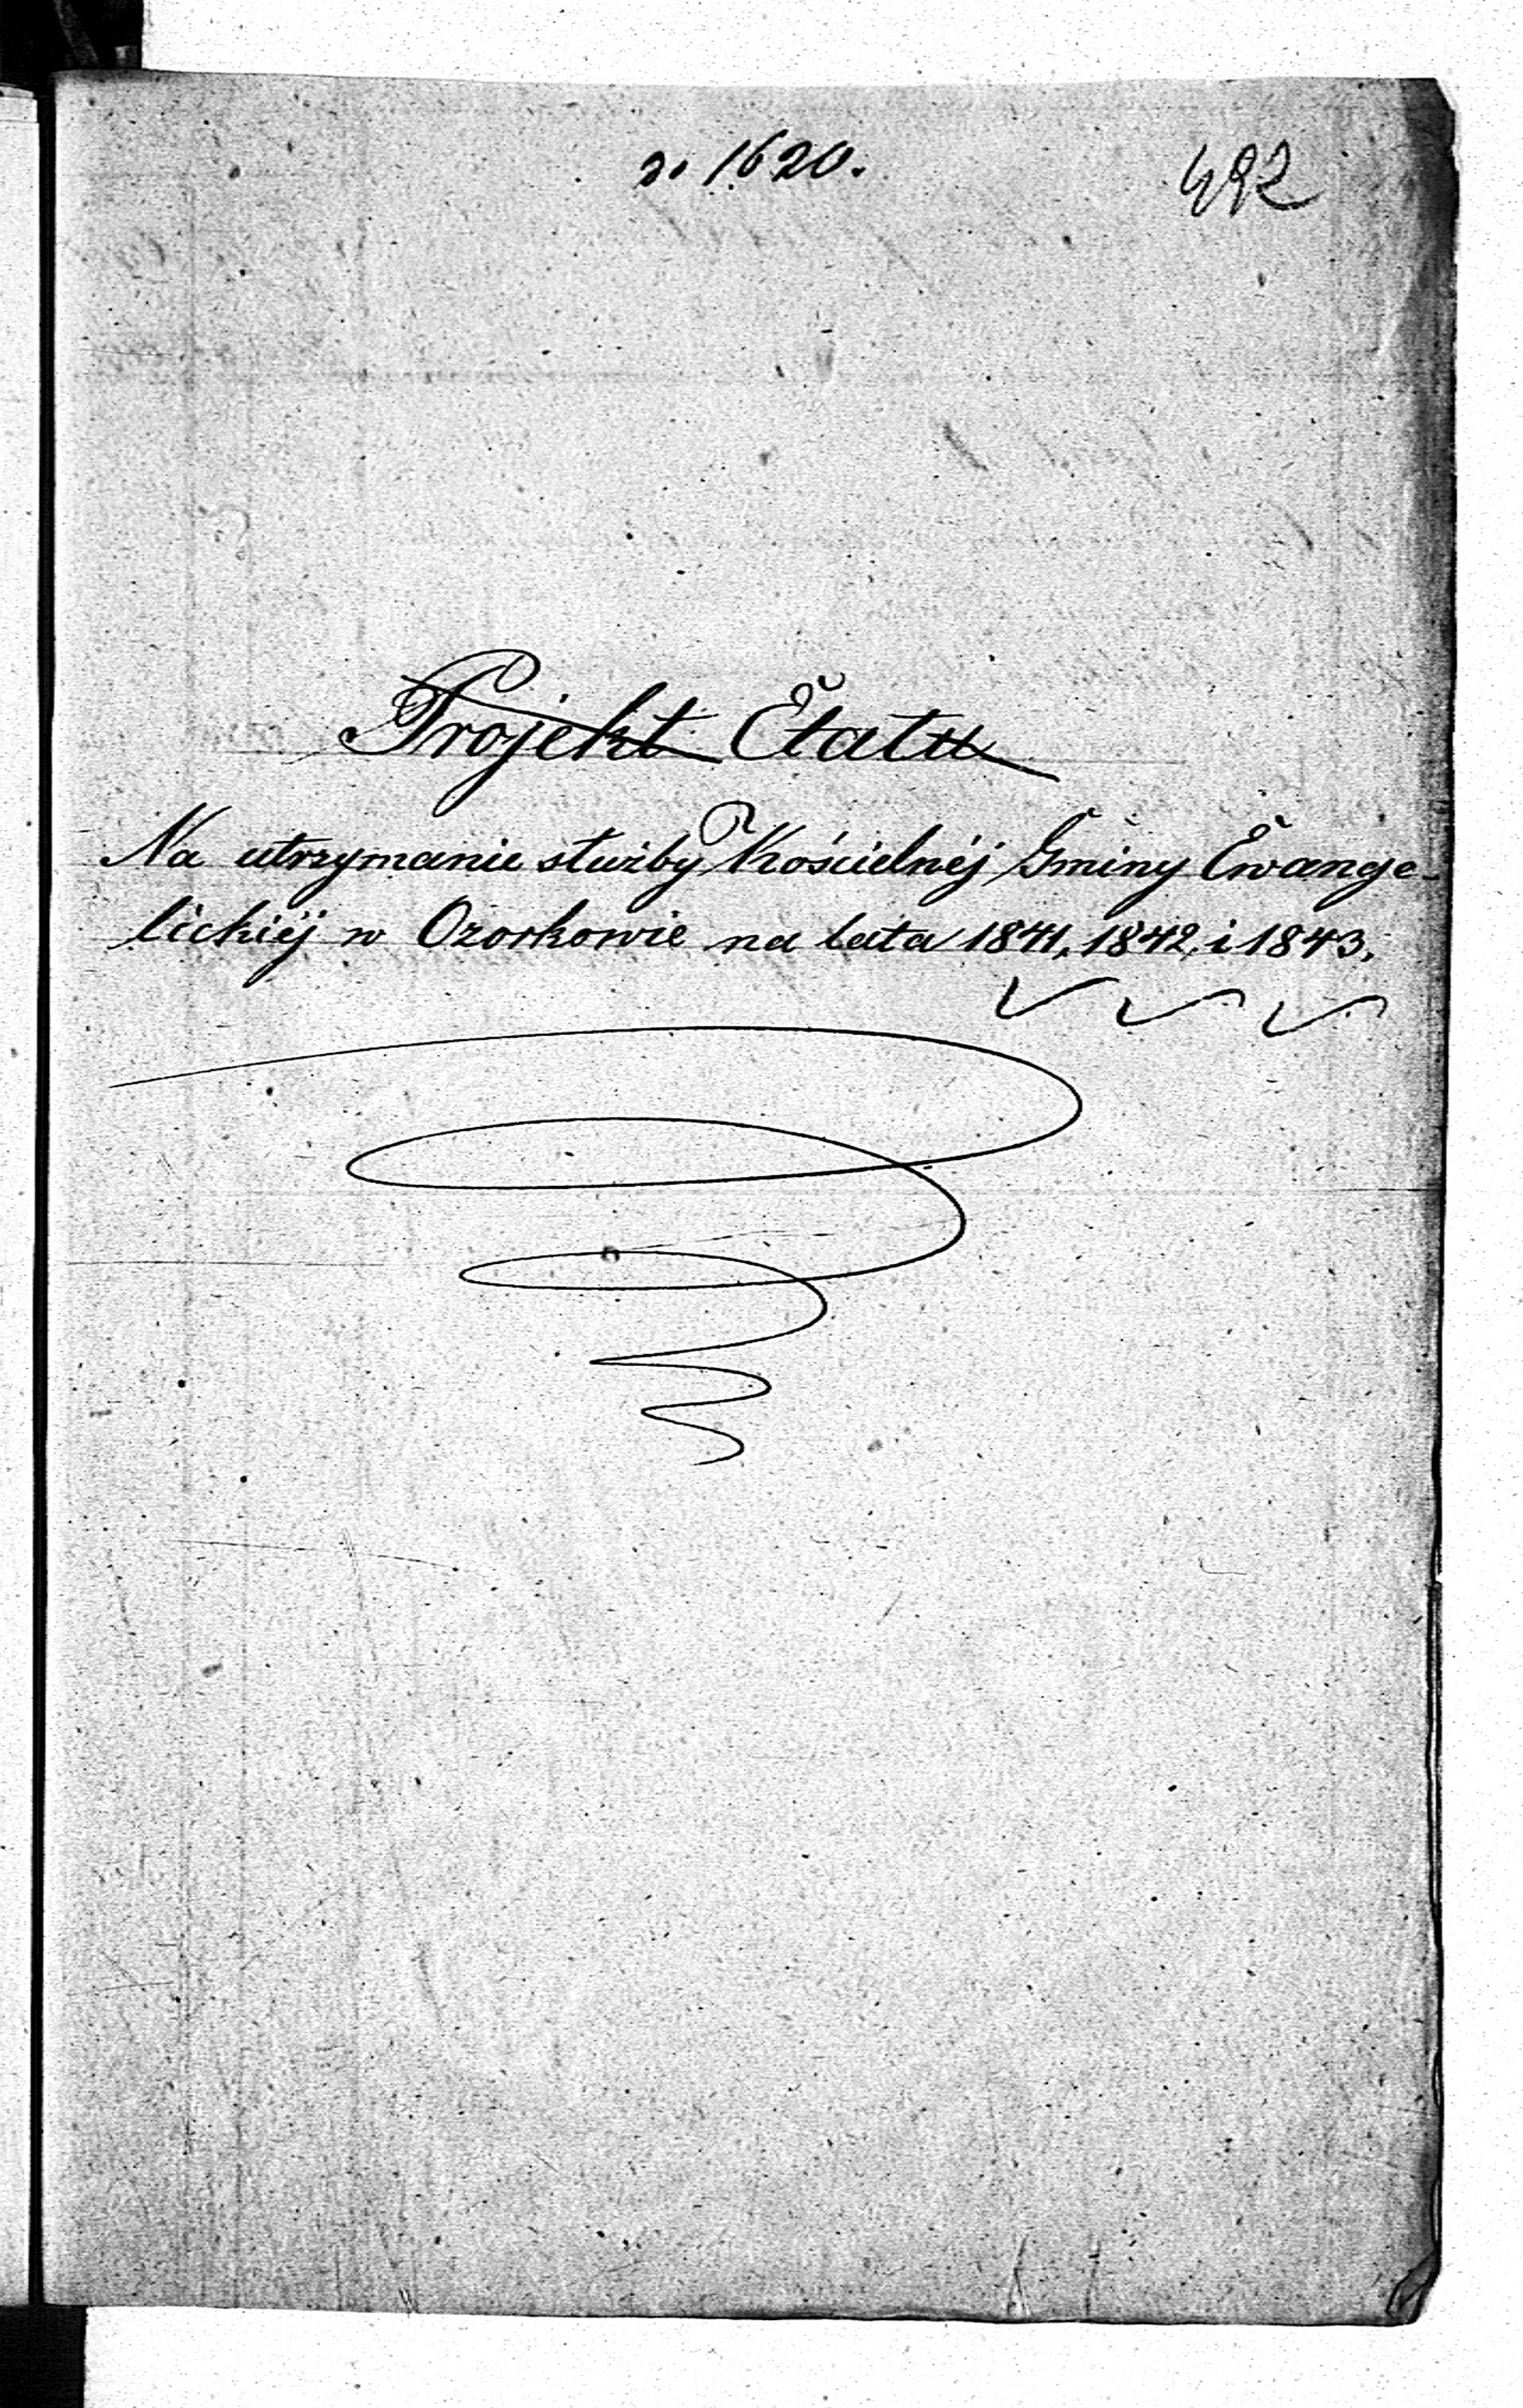 do 1620.
492
Projekt Etatu
Na utrzymanie służby Kościelnéj Gminy Ewange-
lickiéj w Ozorkowie na lata 1841, 1842, i 1843.